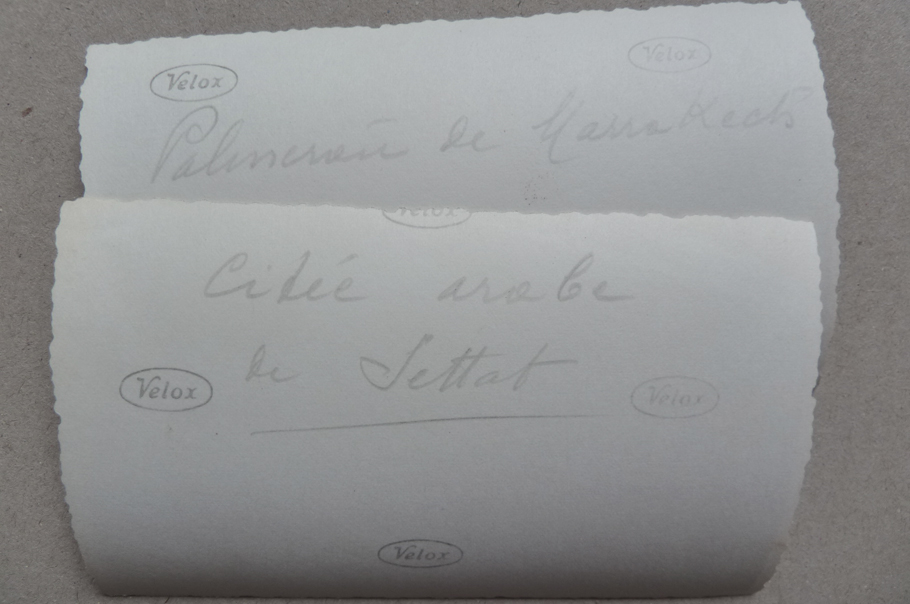 Velox
Velox
Palmeraie de Marrakech
Velox
Citée arabe
de Settat
Velox
Velox
Velox